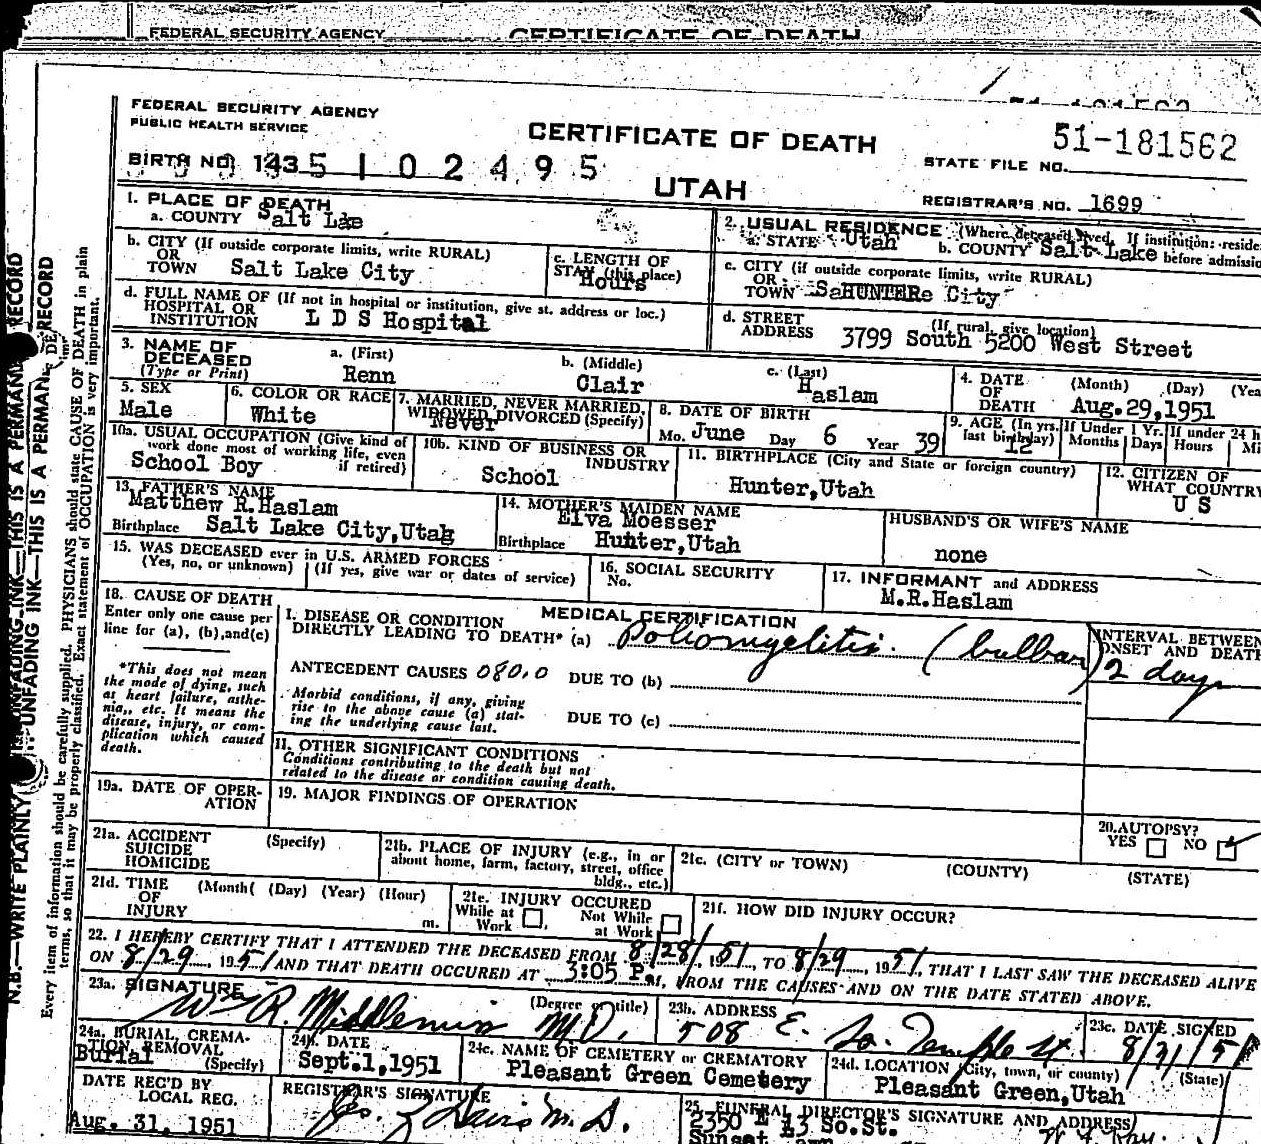 FEDERAL SECURITY AGENCY CERTIFICATE OF DEATH
FEDERAL SECURITY AGENCY
PUBLIC HEALTH SERVICE
CERTIFICATE OF DEATH
51-181562
STATE FILE NO.
BIRTH NO. 143 5 1 0 2 4 9 5
UTAH
REGISTRAR'S NO. 1699
1. PLACE OF DEATH
a. COUNTY Salt Lae
2. USUAL RESIDENCE (Where deceased lived. If institution: reside
a. STATE Utah b. COUNTY Salt Lake before admissio
b. CITY (If outside corporate limits, write RURAL)
OR
TOWN Salt Lake City
c. LENGTH OF
STAY (this place)
Hours
c. CITY (if outside corporate limits, write RURAL)
OR
TOWN SaHUNTERe City
d. FULL NAME OF (If not in hospital or institution, give st. address or loc.)
HOSPITAL OR
INSTITUTION L D S Hospital
d. STREET (If rural, give location)
ADDRESS 3799 South 5200 West Street
3. NAME OF
DECEASED
(Type or Print)
a. (First) b. (Middle) c. (Last)
Renn Clair Haslam
4. DATE OF DEATH (Month) (Day) (Yea
Aug.29,1951
5. SEX
Male
6. COLOR OR RACE
White
7. MARRIED, NEVER MARRIED,
WIDOWED DIVORCED (Specify)
Never
8. DATE OF BIRTH
Mo. June Day 6 Year 39
9. AGE (In yrs. last birthday) 12
If Under 1 Yr. Months Days
If under 24 h Hours Mi
10a. USUAL OCCUPATION (Give kind of
work done most of working life, even
if retired)
School Boy
10b. KIND OF BUSINESS OR
INDUSTRY
School
11. BIRTHPLACE (City and State or foreign country)
Hunter,Utah
12. CITIZEN OF
WHAT COUNTRY
U S
13. FATHER'S NAME
Matthew R.Haslam
Birthplace Salt Lake City,Utah
14. MOTHER'S MAIDEN NAME
Elva Moesser
Birthplace Hunter,Utah
HUSBAND'S OR WIFE'S NAME
none
15. WAS DECEASED ever in U.S. ARMED FORCES
(Yes, no, or unknown) (If yes, give war or dates of service)
16. SOCIAL SECURITY
No.
17. INFORMANT and ADDRESS
M.R.Haslam
18. CAUSE OF DEATH
Enter only one cause per
line for (a), (b),and(c)
*This does not mean
the mode of dying, such
as heart failure, asthe-
nia,, etc. It means the
disease, injury, or com-
plication which caused
death.
MEDICAL CERTIFICATION
I. DISEASE OR CONDITION
DIRECTLY LEADING TO DEATH* (a) Poliomyelitis. (bulbar)
INTERVAL BETWEEN
ONSET AND DEATH
2 days
ANTECEDENT CAUSES 080.0 DUE TO (b)
Morbid conditions, if any, giving
rise to the above cause (a) stat-
ing the underlying cause last.
DUE TO (c)
II. OTHER SIGNIFICANT CONDITIONS
Conditions contributing to the death but not
related to the disease or condition causing death.
19a. DATE OF OPER-
ATION
19. MAJOR FINDINGS OF OPERATION
20. AUTOPSY?
YES NO
21a. ACCIDENT (Specify)
SUICIDE
HOMICIDE
21b. PLACE OF INJURY (e.g., in or
about home, farm, factory, street, office
bldg., etc.)
21c. (CITY or TOWN) (COUNTY) (STATE)
21d. TIME (Month( (Day) (Year) (Hour)
OF
INJURY m.
21e. INJURY OCCURED
While at Work Not While at Work
21f. HOW DID INJURY OCCUR?
22. I HEREBY CERTIFY THAT I ATTENDED THE DECEASED FROM 8/28/, 1951, TO 8/29, 1951, THAT I LAST SAW THE DECEASED ALIVE
ON 8/29, 1951 AND THAT DEATH OCCURED AT 3:05 P.M, FROM THE CAUSES AND ON THE DATE STATED ABOVE.
23a. SIGNATURE (Degree or title)
Wm R. M.D.
23b. ADDRESS
508 E. So. Temple St.
23c. DATE SIGNED
8/31/51
24a. BURIAL, CREMA-
TION, REMOVAL
(Specify)
Burial
24b. DATE
Sept.1,1951
24c. NAME OF CEMETERY or CREMATORY
Pleasant Green Cemetery
24d. LOCATION (City, town, or county) (State)
Pleasant Green,Utah
DATE REC'D BY
LOCAL REG.
Aug. 31, 1951
REGISTRAR'S SIGNATURE
M.D.
25. FUNERAL DIRECTOR'S SIGNATURE AND ADDRESS
2350 E 13 So.St.
Sunset Lawn
N.B.—WRITE PLAINLY UNFADING INK—THIS IS A PERMANENT RECORD
UNFADING INK—THIS IS A PERMAN RECORD
Every item of information should be carefully supplied. PHYSICIANS should state CAUSE OF DEATH in plain
terms, so that it may be properly classified. Exact statement of OCCUPATION is very important.